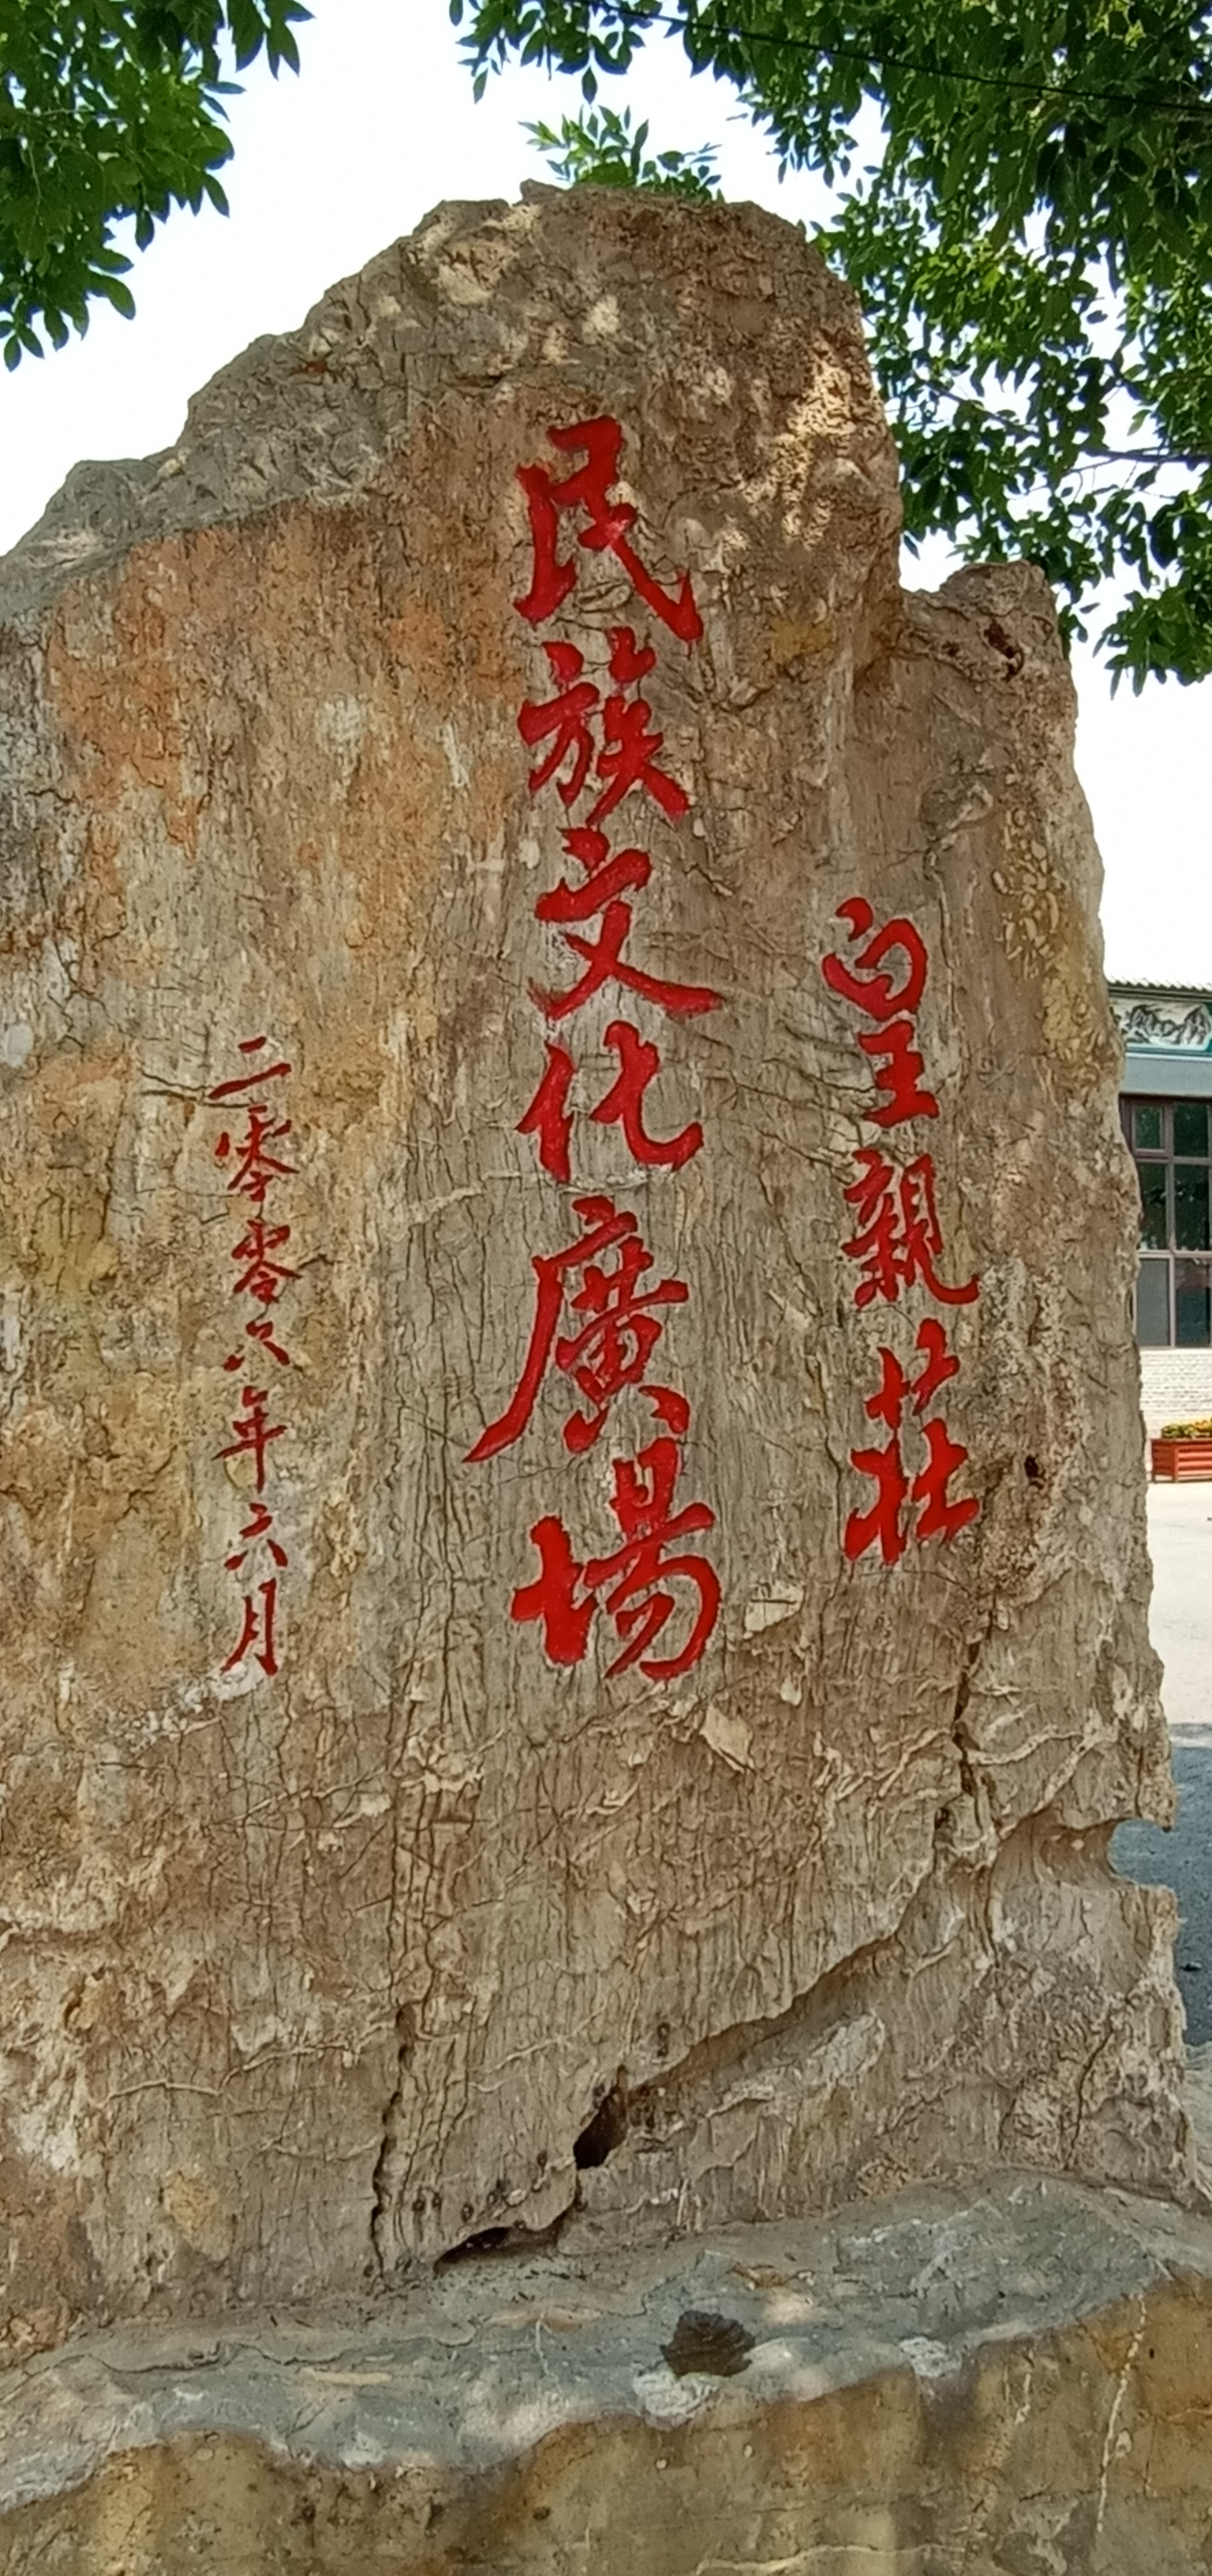 皇親莊
民族文化廣場
二零零六年六月